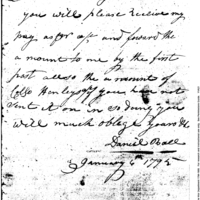 you will please Receive my
pay as for a/c and forward the
a mount to me by the first
part allso the a mount of
Collo Henleys if you have not
sent it on in so duing you
will much oblige yours &c
Daniel Ball
January 6th 1795